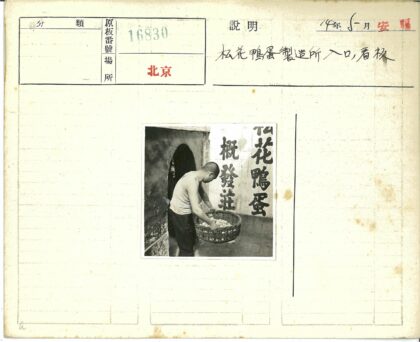 分類
原板番號
16830
場所
北京
説明
14年5月
松花鴨蛋製造所入口,看板
松花鴨蛋
概發莊